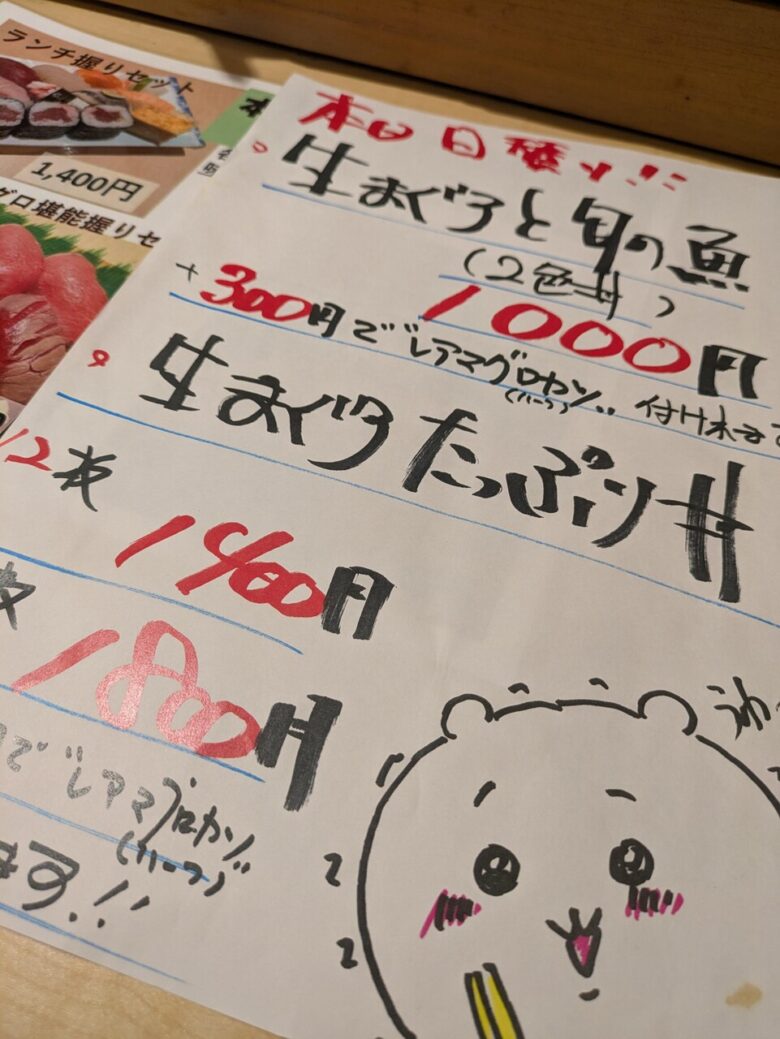 ランチ握りセット
1,400円
グロ堪能握りセ
本日日替り!!
生まぐろと旬の魚
(2色丼)
1000円
+300円でレアマグロカツ(ハーフ)付け
生まぐろたっぷり丼
12枚
1400円
枚
1800円
でレアマグロカツ
(ハーフ)
ます!!